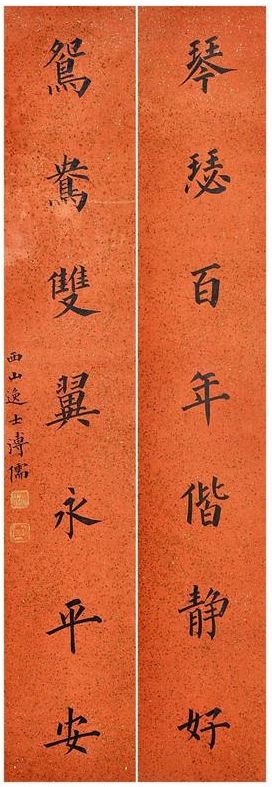 琴瑟百年偕静好
鴛鴦雙翼永平安
西山逸士溥儒